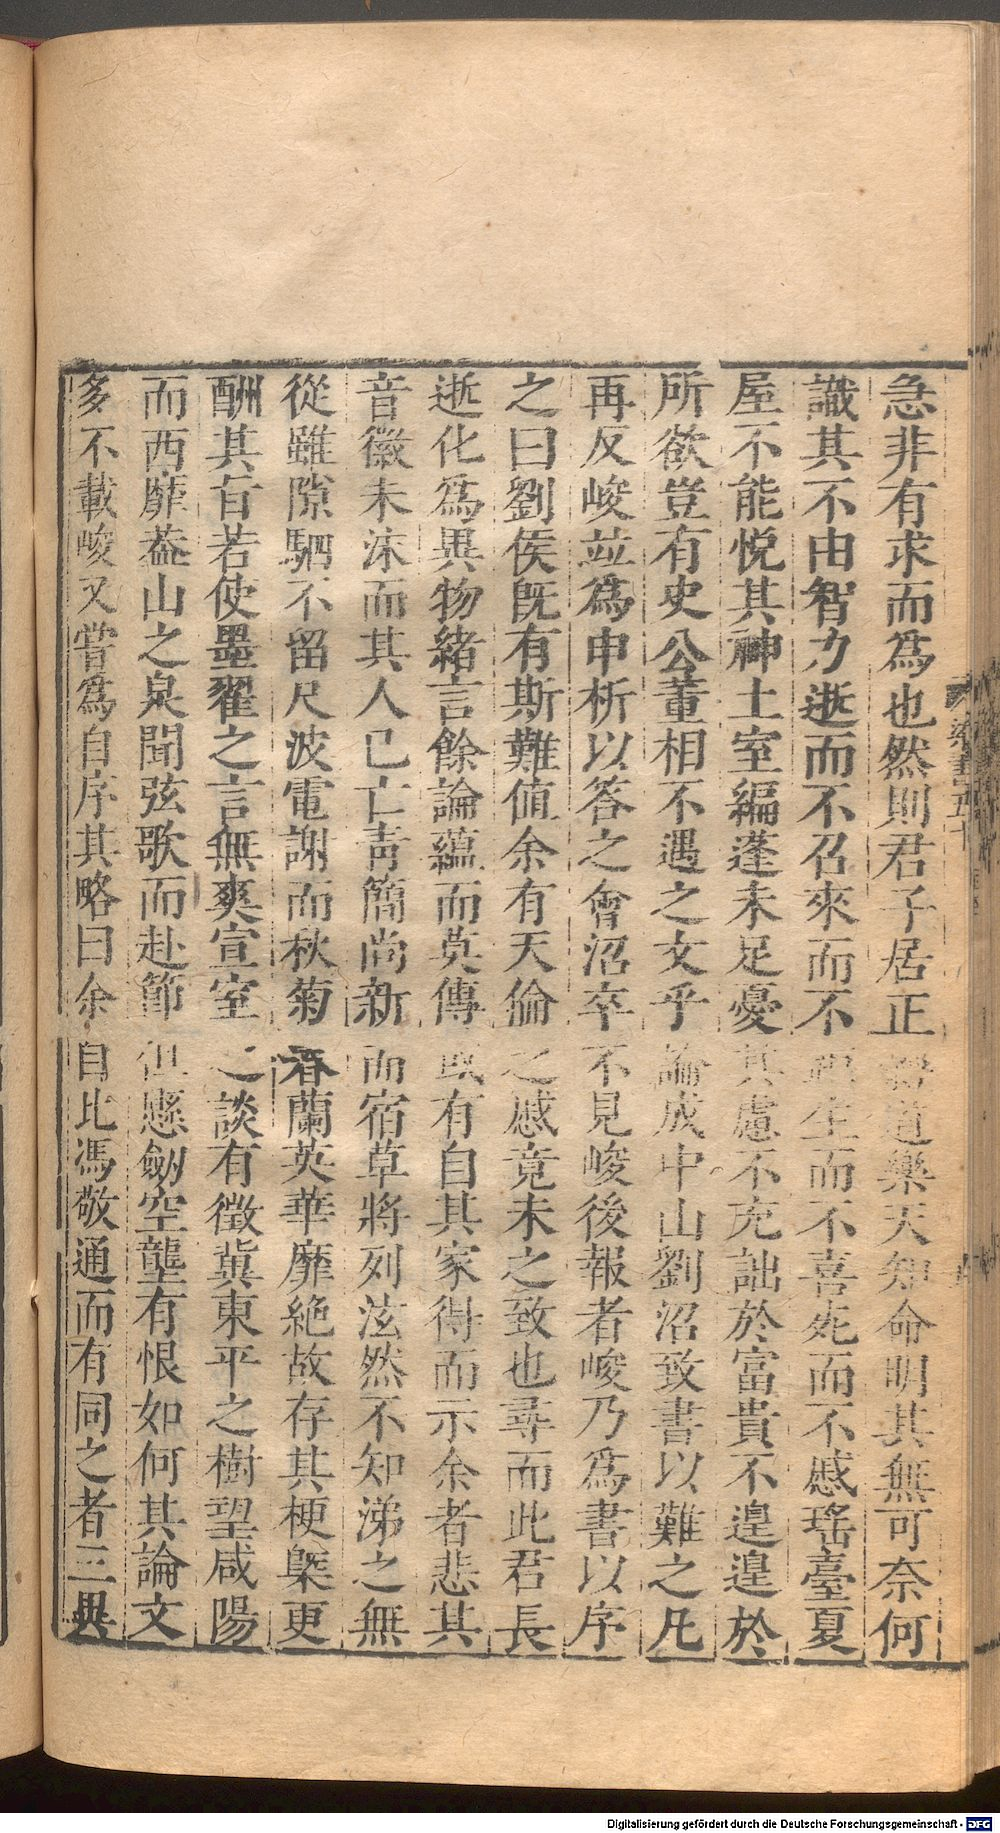 急非有求而爲也然則君子居正體道樂天知命明其無可奈何
識其不由智力逝而不召來而不距生而不喜死而不慼瑤臺夏
屋不能悅其神土室編蓬未足憂其慮不充詘於富貴不遑遑於
所欲豈有史公董相不遇之文乎論成中山劉沼致書以難之凡
再反峻並爲申析以答之會沼卒不見峻後報者峻乃爲書以序
之曰劉侯旣有斯難値余有天倫之慼竟未之致也尋而此君長
逝化爲異物緒言餘論蘊而莫傳或有自其家得而示余者悲其
音徽未沬而其人已亡靑簡尚新而宿草將列泫然不知涕之無
從雖隙駟不留尺波電謝而秋菊春蘭英華靡絶故存其梗槩更
酬其旨若使墨翟之言無爽宣室之談有徵冀東平之樹望咸陽
而西靡葢山之泉聞弦歌而赴節但懸劒空壟有恨如何其論文
多不載峻又嘗爲自序其略曰余自比馮敬通而有同之者三異
梁書五十
Digitalisierung gefördert durch die Deutsche Forschungsgemeinschaft - DFG